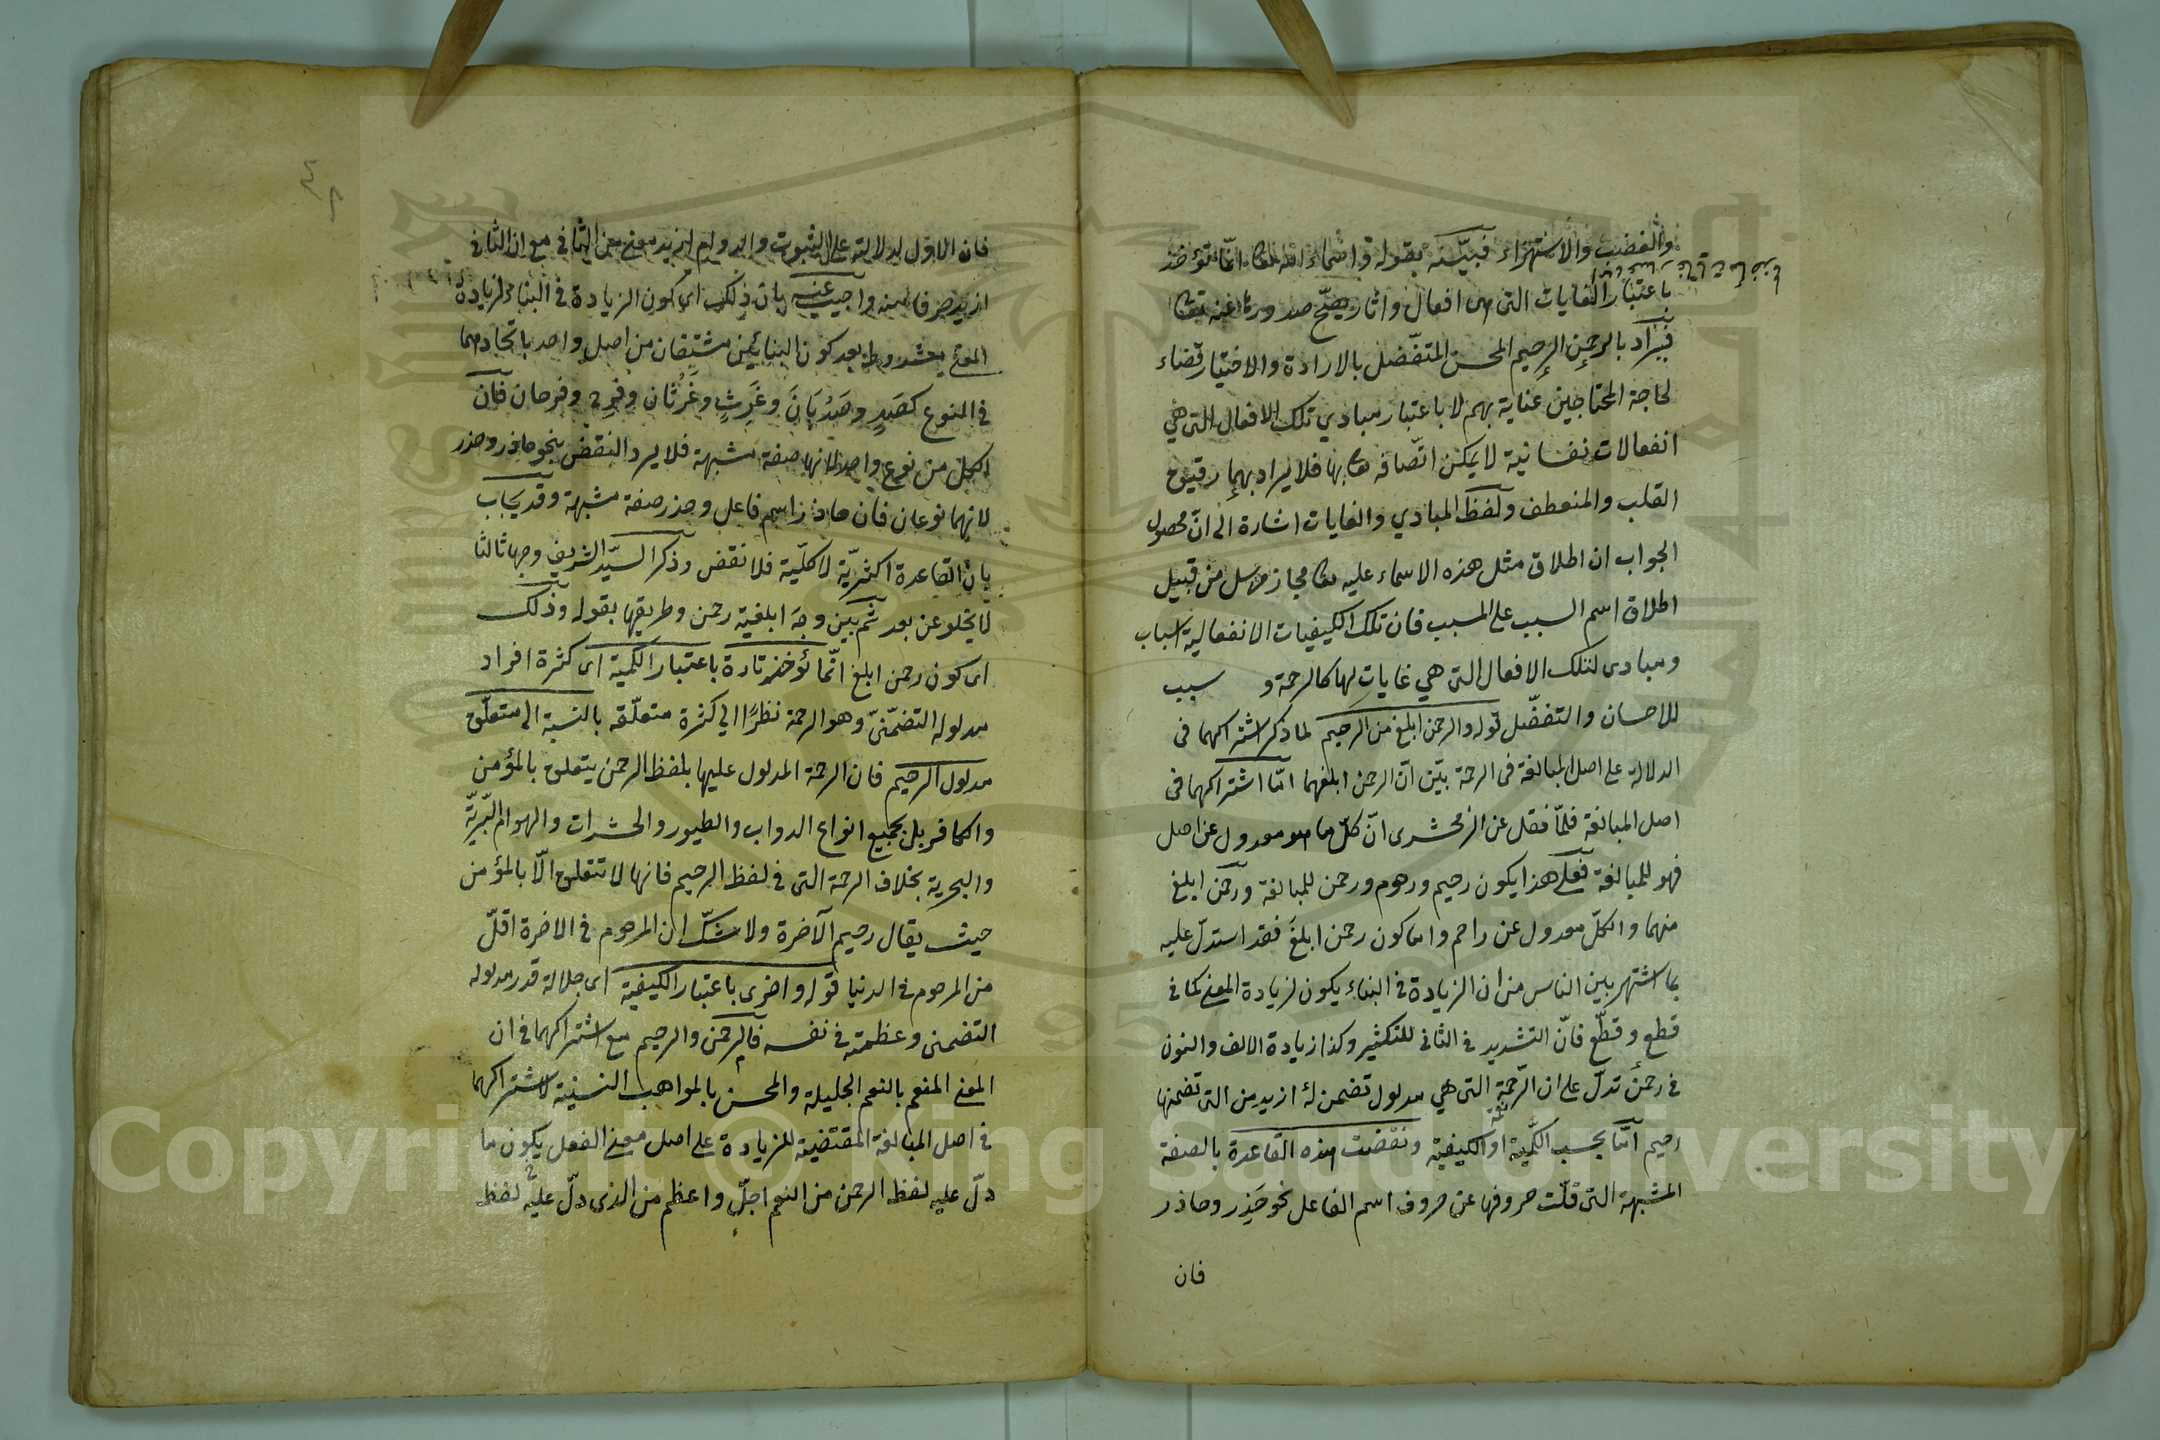 والغضب والاستهزاء فبيّنه بقوله واسماء الله تعا انّما تؤخذ
باعتبار الغايات التى هى افعال واثار يصح صدورها عنه تعا
فيراد بالرحمن الرحيم المحسن المتفضل بالارادة والاختيار قضاء
لحاجة المحتاجين عناية بهم لا باعتبار مبادي تلك الافعال التى هي
انفعالات نفسانية لا يمكن اتصافه تعا بها فلا يراد بهما رقيق
القلب والمنعطف ولفظ المبادي والغايات اشارة الى انّ محصول
الجواب ان اطلاق مثل هذه الاسماء عليه تعا مجاز مرسل من قبيل
اطلاق اسم السبب على المسبب فان تلك الكيفيات الانفعالية اسباب
ومبادى لتلك الافعال التى هي غايات لها كالرحمة و سبب
للاحسان والتفضّل قوله والرحمن ابلغ من الرحيم لما ذكر اشتراكهما فى
الدلالة على اصل المبالغة فى الرحمة بيّن انّ الرحمن ابلغهما امّا اشتراكهما فى
اصل المبالغة فلما نقل عن الزمخشرى انّ كلّ ما هو معدول عن اصل
فهو للمبالغة فعلى هذا يكون رحيم ورحوم ورحمن للمبالغة ورحمن ابلغ
منهما والكلّ معدول عن راحم واما كون رحمن ابلغ فقد استدلّ عليه
بما اشتهر بين الناس من ان الزيادة فى البناء يكون لزيادة المعنى كما فى
قطع وقطّع فانّ التشديد فى الثانى للتكثير وكذا زيادة الالف والنون
فى رحمن تدلّ على ان الرّحمة التى هي مدلول تضمن له ازيد من التى تضمنها
رحيم امّا بحسب الكمّية او الكيفية ونقضت هذه القاعدة بالصفة
المشبهة التى قلّت حروفها عن حروف اسم الفاعل نحو حَذِر وحاذر
فان
فان الاول لدلالته على الثبوت والدوام ازيد معنى من الثانى مع ان الثانى
ازيد حرفا منه واجيب عنه بان ذلك اى كون الزيادة فى البناء لزيادة
المعنى مشروط بعد كون البنائين مشتقان من اصل واحد باتحادهما
فى النوع كصَدٍ وصَدْيَان وغَرِثٍ وغَرْثان وفَرِح وفرحان فان
الكل من نوع واحد لانها صفة مشبهة فلا يرد النقض بنحو حاذر وحذر
لانهما نوعان فان حاذرا اسم فاعل وحذر صفة مشبهة وقد يجاب
بان القاعدة اكثريّة لا كليّة فلا نقض وذكر السيّد الشريف وجها ثالثا
لا يخلو عن بعد ثم بين وجه ابلغية رحمن وطريقها بقوله وذلك
اى كون رحمن ابلغ انّما تؤخذ تارة باعتبار الكمية اى كثرة افراد
مدلوله التضمّنىّ وهو الرحمة نظرًا الى كثرة متعلّقه بالنسبة الى متعلّق
مدلول الرحيم فان الرحمة المدلول عليها بلفظ الرحمن يتعلق بالمؤمن
والكافر بل بجميع انواع الدواب والطيور والحشرات والهوام البّريّة
والبحرية بخلاف الرحمة التى فى لفظ الرحيم فانها لا تتعلق الّا بالمؤمن
حيث يقال رحيم الآخرة ولا شكّ ان المرحوم فى الاخرة اقلّ
من المرحوم فى الدنيا قوله واخرى باعتبار الكيفية اى جلالة قدر مدلوله
التضمنى وعظمته فى نفسه فالرحمن والرحيم مع اشتراكهما فى ان
المعنى المنعم بالنعم الجليلة والمحسن بالمواهب السنية لاشتراكهما
فى اصل المبالغة المقتضية للزيادة على اصل معنى الفعل يكون ما
دلّ عليه لفظ الرحمن من النعم اجلّ واعظم من الذى دلّ عليه لفظ
Copyright © King Saud University
1957